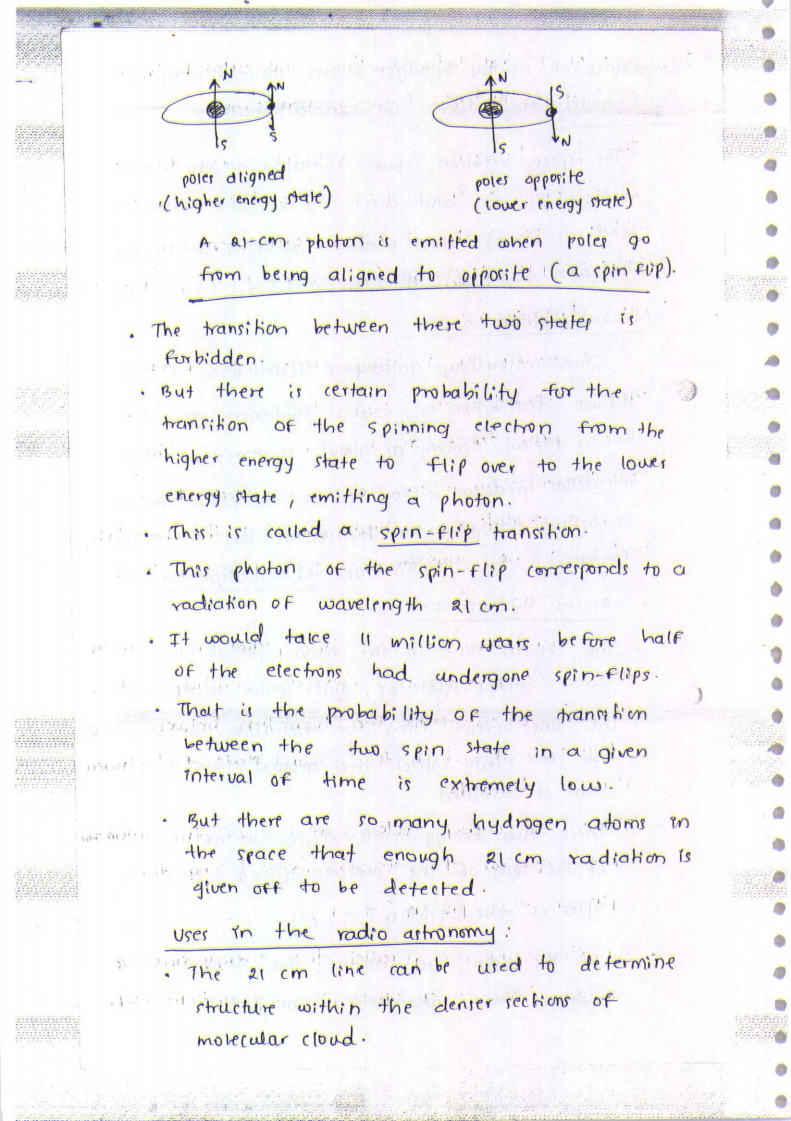 N N
S S
S N
N S
poles aligned
(higher energy state)
poles opposite
(lower energy state)
A 21-cm photon is emitted when poles go
from being aligned to opposite (a spin flip).
• The transition between these two states is
forbidden.
• But there is certain probability for the
transition of the spinning electron from the
higher energy state to flip over to the lower
energy state, emitting a photon.
• This is called a spin-flip transition.
• This photon of the spin-flip corresponds to a
radiation of wavelength 21 cm.
• It would take 11 million years before half
of the electrons had undergone spin-flips.
• That is the probability of the transition
between the two spin state in a given
interval of time is extremely low.
• But there are so many hydrogen atoms in
the space that enough 21 cm radiation is
given off to be detected.
Uses in the radio astronomy:
• The 21 cm line can be used to determine
structure within the denser sections of
molecular cloud.